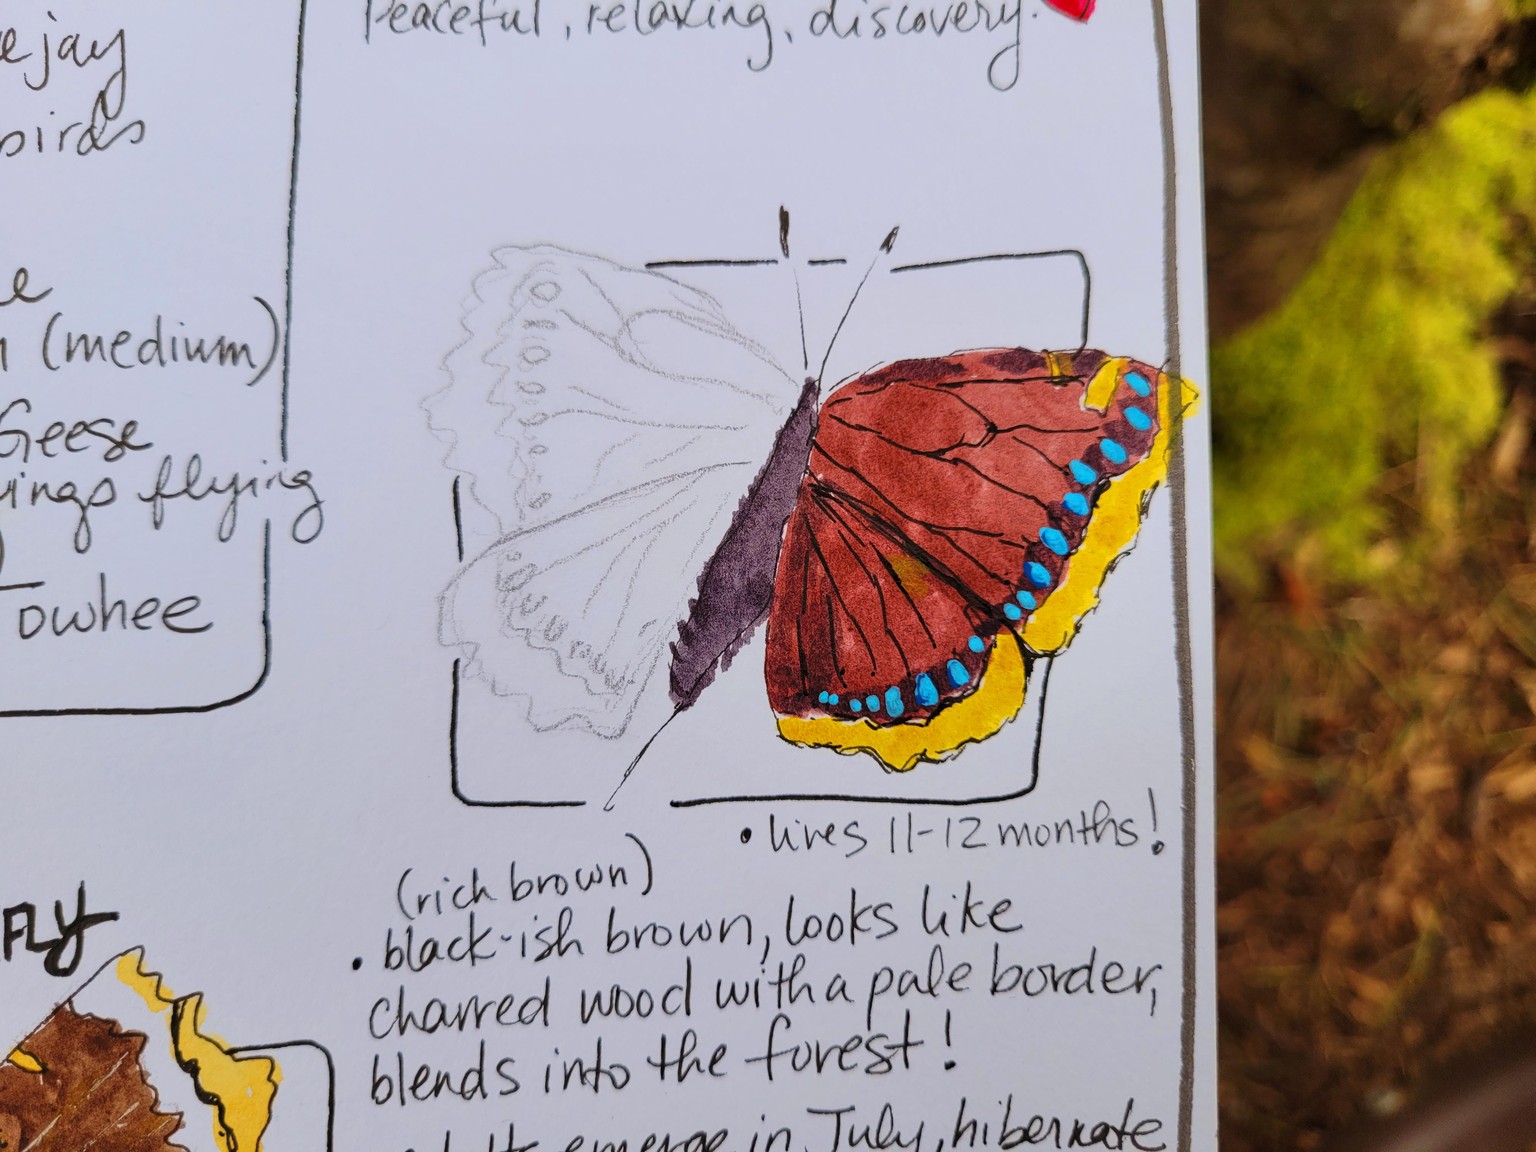 Peaceful, relaxing, discovery.
jay
birds
(medium)
Geese
flying
Towhee
FLY
• lives 11-12 months!
(rich brown)
• black-ish brown, looks like
charred wood with a pale border,
blends into the forest!
emerge in July, hibernate